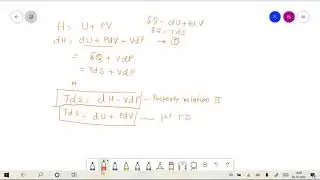 H = U + PV
δQ - dU + PdV
δQ = TdS
dH = dU + PdV + VdP → ①
= δQ + VdP
= TdS + VdP
H
TdS = dH - VdP - Property relation II
TdS = dU + PdV — 1st TD